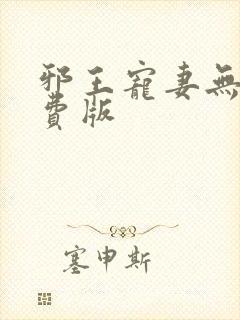 邪王寵妻無
費版
塞申斯